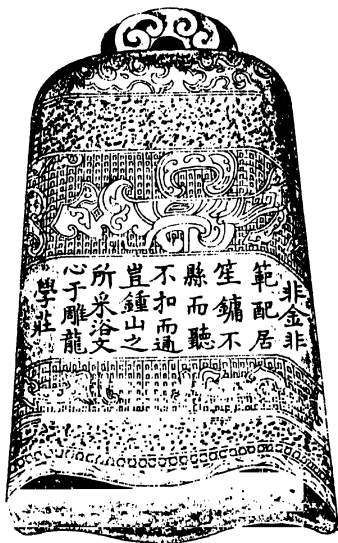 非金非
範配居
笙鏞不
縣而聽
不扣而通
豈鍾山之
所采浴文
心于雕龍
學莊